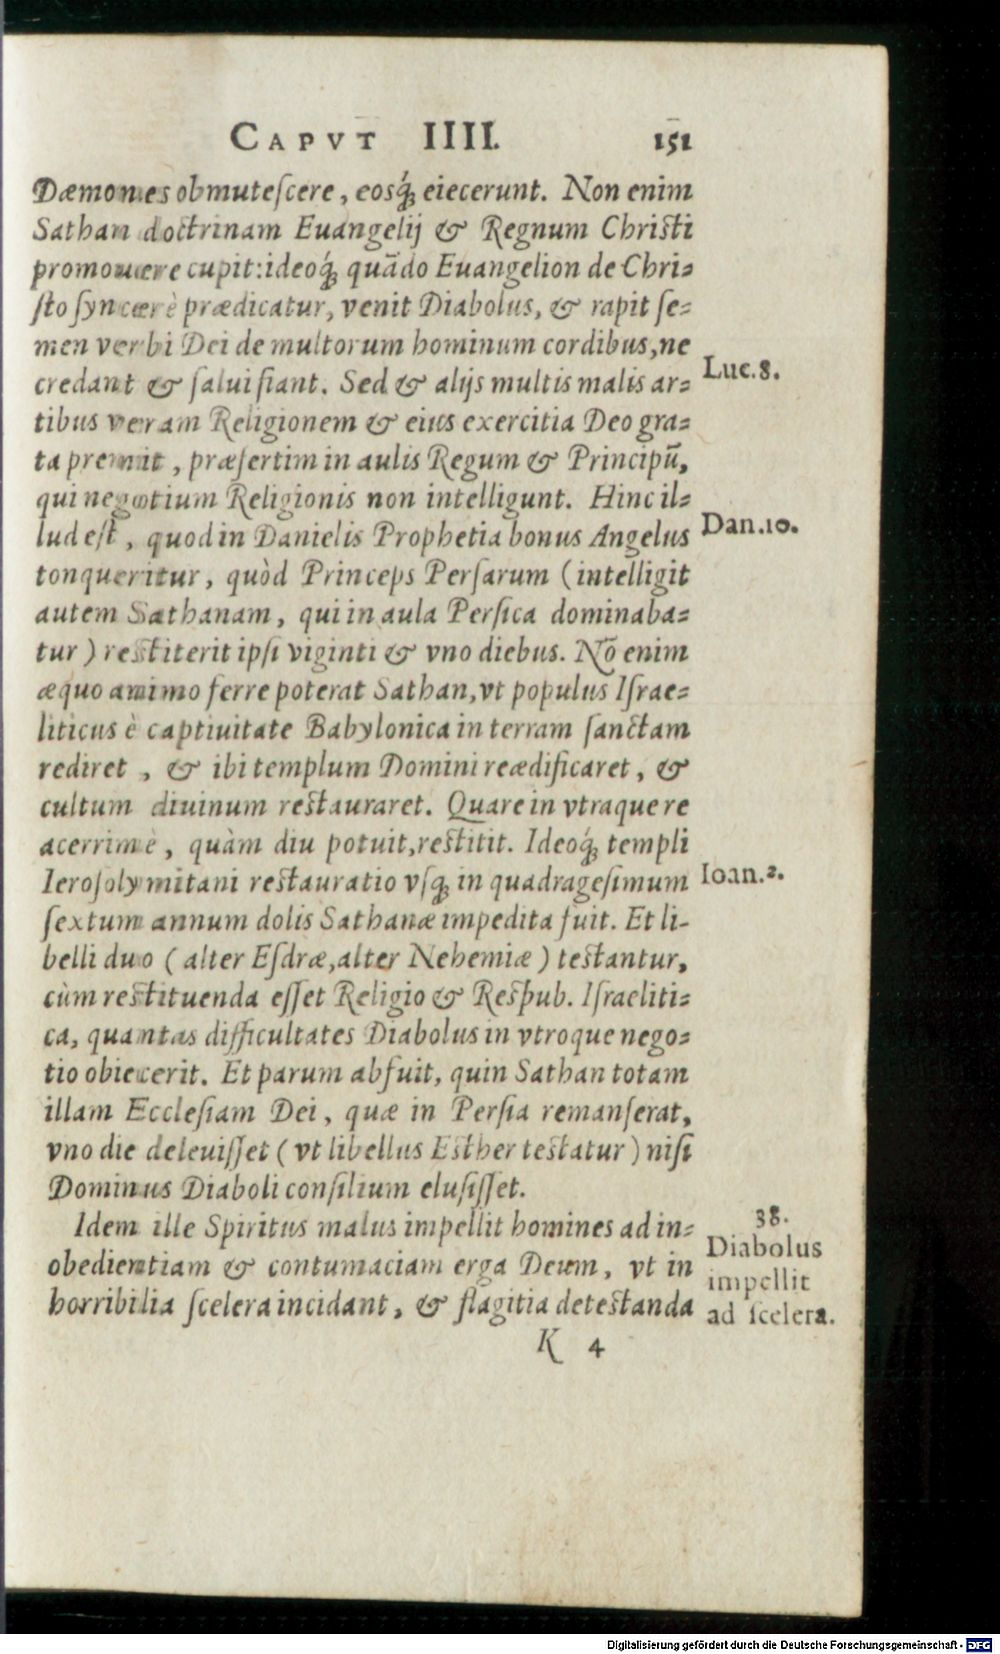 CAPVT IIII. 151
Dæmones obmuteſcere, eosq́; eiecerunt. Non enim
Sathan doctrinam Euangelij & Regnum Chriſti
promouere cupit: ideoq́; quādo Euangelion de Chri-
ſto ſyncerè prædicatur, venit Diabolus, & rapit ſe-
men verbi Dei de multorum hominum cordibus, ne
credant & ſalui fiant. Sed & alijs multis malis ar-
Luc. 8.
tibus veram Religionem & eius exercitia Deo gra-
ta premit, præſertim in aulis Regum & Principū,
qui negotium Religionis non intelligunt. Hinc il-
lud eſt, quod in Danielis Prophetia bonus Angelus
Dan. 10.
tonqueritur, quòd Princeps Perſarum (intelligit
autem Sathanam, qui in aula Perſica dominaba-
tur) reſtiterit ipſi viginti & vno diebus. Nō enim
æquo animo ferre poterat Sathan, vt populus Iſrae-
liticus è captiuitate Babylonica in terram ſanctam
rediret, & ibi templum Domini reædificaret, &
cultum diuinum reſtauraret. Quare in vtraque re
acerrimè, quàm diu potuit, reſtitit. Ideoq́; templi
Ieroſolymitani reſtauratio vſq́; in quadrageſimum
Ioan. 2.
ſextum annum dolis Sathanæ impedita fuit. Et li-
belli duo (alter Eſdræ, alter Nehemiæ) teſtantur,
cùm reſtituenda eſſet Religio & Reſpub. Iſraeliti-
ca, quantas difficultates Diabolus in vtroque nego-
tio obiecerit. Et parum abfuit, quin Sathan totam
illam Eccleſiam Dei, quæ in Perſia remanſerat,
vno die deleuiſſet (vt libellus Eſther teſtatur) niſi
Dominus Diaboli conſilium eluſiſſet.
Idem ille Spiritus malus impellit homines ad in-
obedientiam & contumaciam erga Deum, vt in
horribilia ſcelera incidant, & flagitia deteſtanda
38.
Diabolus
impellit
ad ſcelera.
K 4
Digitalisierung gefördert durch die Deutsche Forschungsgemeinschaft - DFG